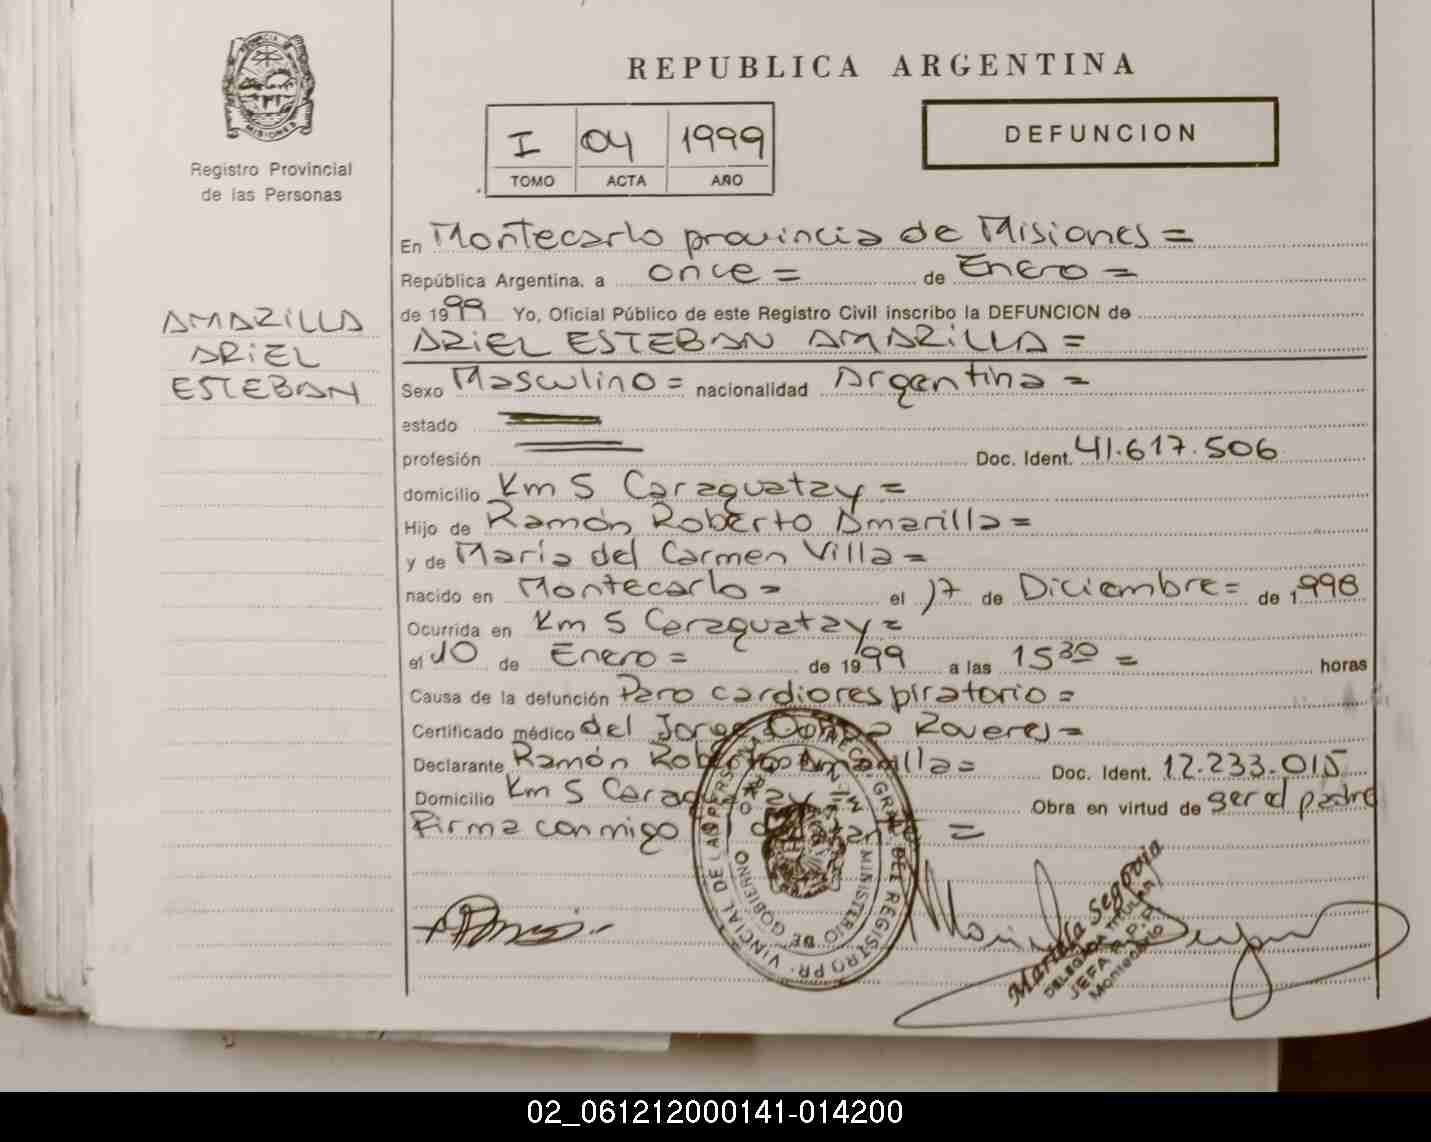 REPUBLICA ARGENTINA
PROVINCIA DE MISIONES
Registro Provincial
de las Personas
I 04 1999
TOMO ACTA AÑO
DEFUNCION
AMARILLA
ARIEL
ESTEBAN
En Montecarlo provincia de Misiones =
República Argentina, a once = de Enero =
de 1999 Yo, Oficial Público de este Registro Civil inscribo la DEFUNCION de
ARIEL ESTEBAN AMARILLA =
Sexo Masculino = nacionalidad Argentina =
estado
profesión Doc. Ident. 41.617.506
domicilio Km 5 Caraguatay =
Hijo de Ramón Roberto Amarilla =
y de María del Carmen Villa =
nacido en Montecarlo = el 17 de Diciembre = de 1998
Ocurrida en Km 5 Caraguatay =
el 10 de Enero = de 1999 a las 15 30 = horas
Causa de la defunción Paro cardiorespiratorio =
Certificado médico del Jorge =
Declarante Ramón Roberto Amarilla = Doc. Ident. 12.233.015
Domicilio Km 5 Caraguatay Obra en virtud de ser el padre
Firma conmigo =
MINISTERIO DE GOBIERNO
Mariela Segovia
DELEGADA TITULAR
JEFA R.P.P.
Montecarlo
02_061212000141-014200